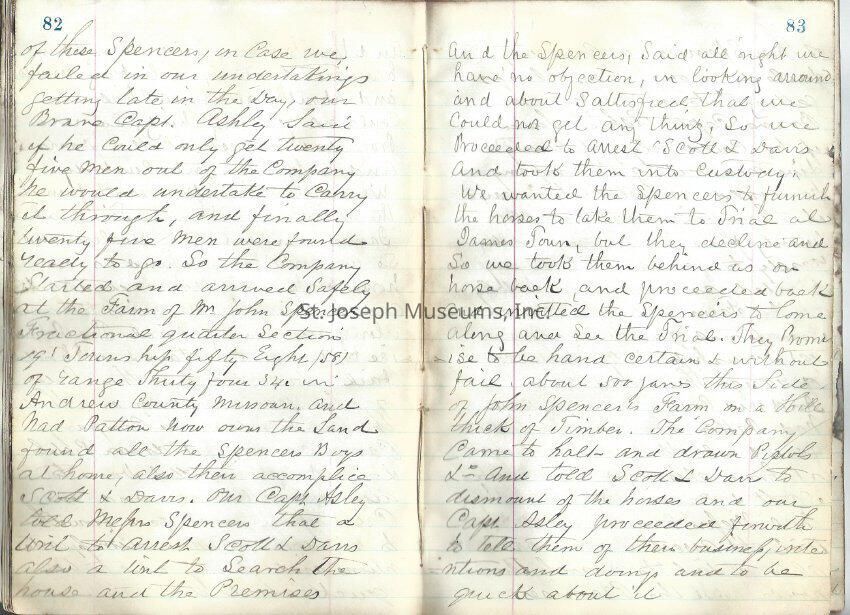 82
of these Spencers, in Case we,
failed in our undertakings
getting late in the Day, our
Brave Capt. Ashley Said
if he Could only get twenty
five men out of the Company
he would undertake to Carry
it through, and finally
twenty five Men were found
ready to go. So the Company
Started and arrived Safely
at the Farm of Mr John Spencer
Fractional quarter Section
19 Township fifty Eight (58)
of range Thirty four 34 in
Andrew County Missouri, and
Nad Patton Now owns the Land
found all the Spencers Boys
at home, also their accomplice
Scott & Davis. Our Capt Asley
told Messrs Spencers that a
Writ to arrest Scott & Davis
also a writ to Search the
house and the Premises
83
and the Spencers, Said all right we
have no objection, in looking arround
and about Sattisfied that we
Could not get any thing, So we
Proceeded to arrest Scott & Davis
and took them into Custody.
We wanted the Spencers to furnish
the horses to take them to Trial at
James Town, but they decline and
So we took them behind us on
horse back, and proceeded back
permitted the Spencers to Come
along and See the Trial. They Prom
ise to be hand certain & without
fail. about 500 yards this Side
of John Spencer's Farm on a Hill
thick of Timber. The Company
Came to halt and drawn Pistols
& and told Scott & Davis to
dismount of the horses and our
Capt. Asley proceeded
to tell them of their business, inte
ntions and doings and to be
quick about it
St. Joseph Museums, Inc.